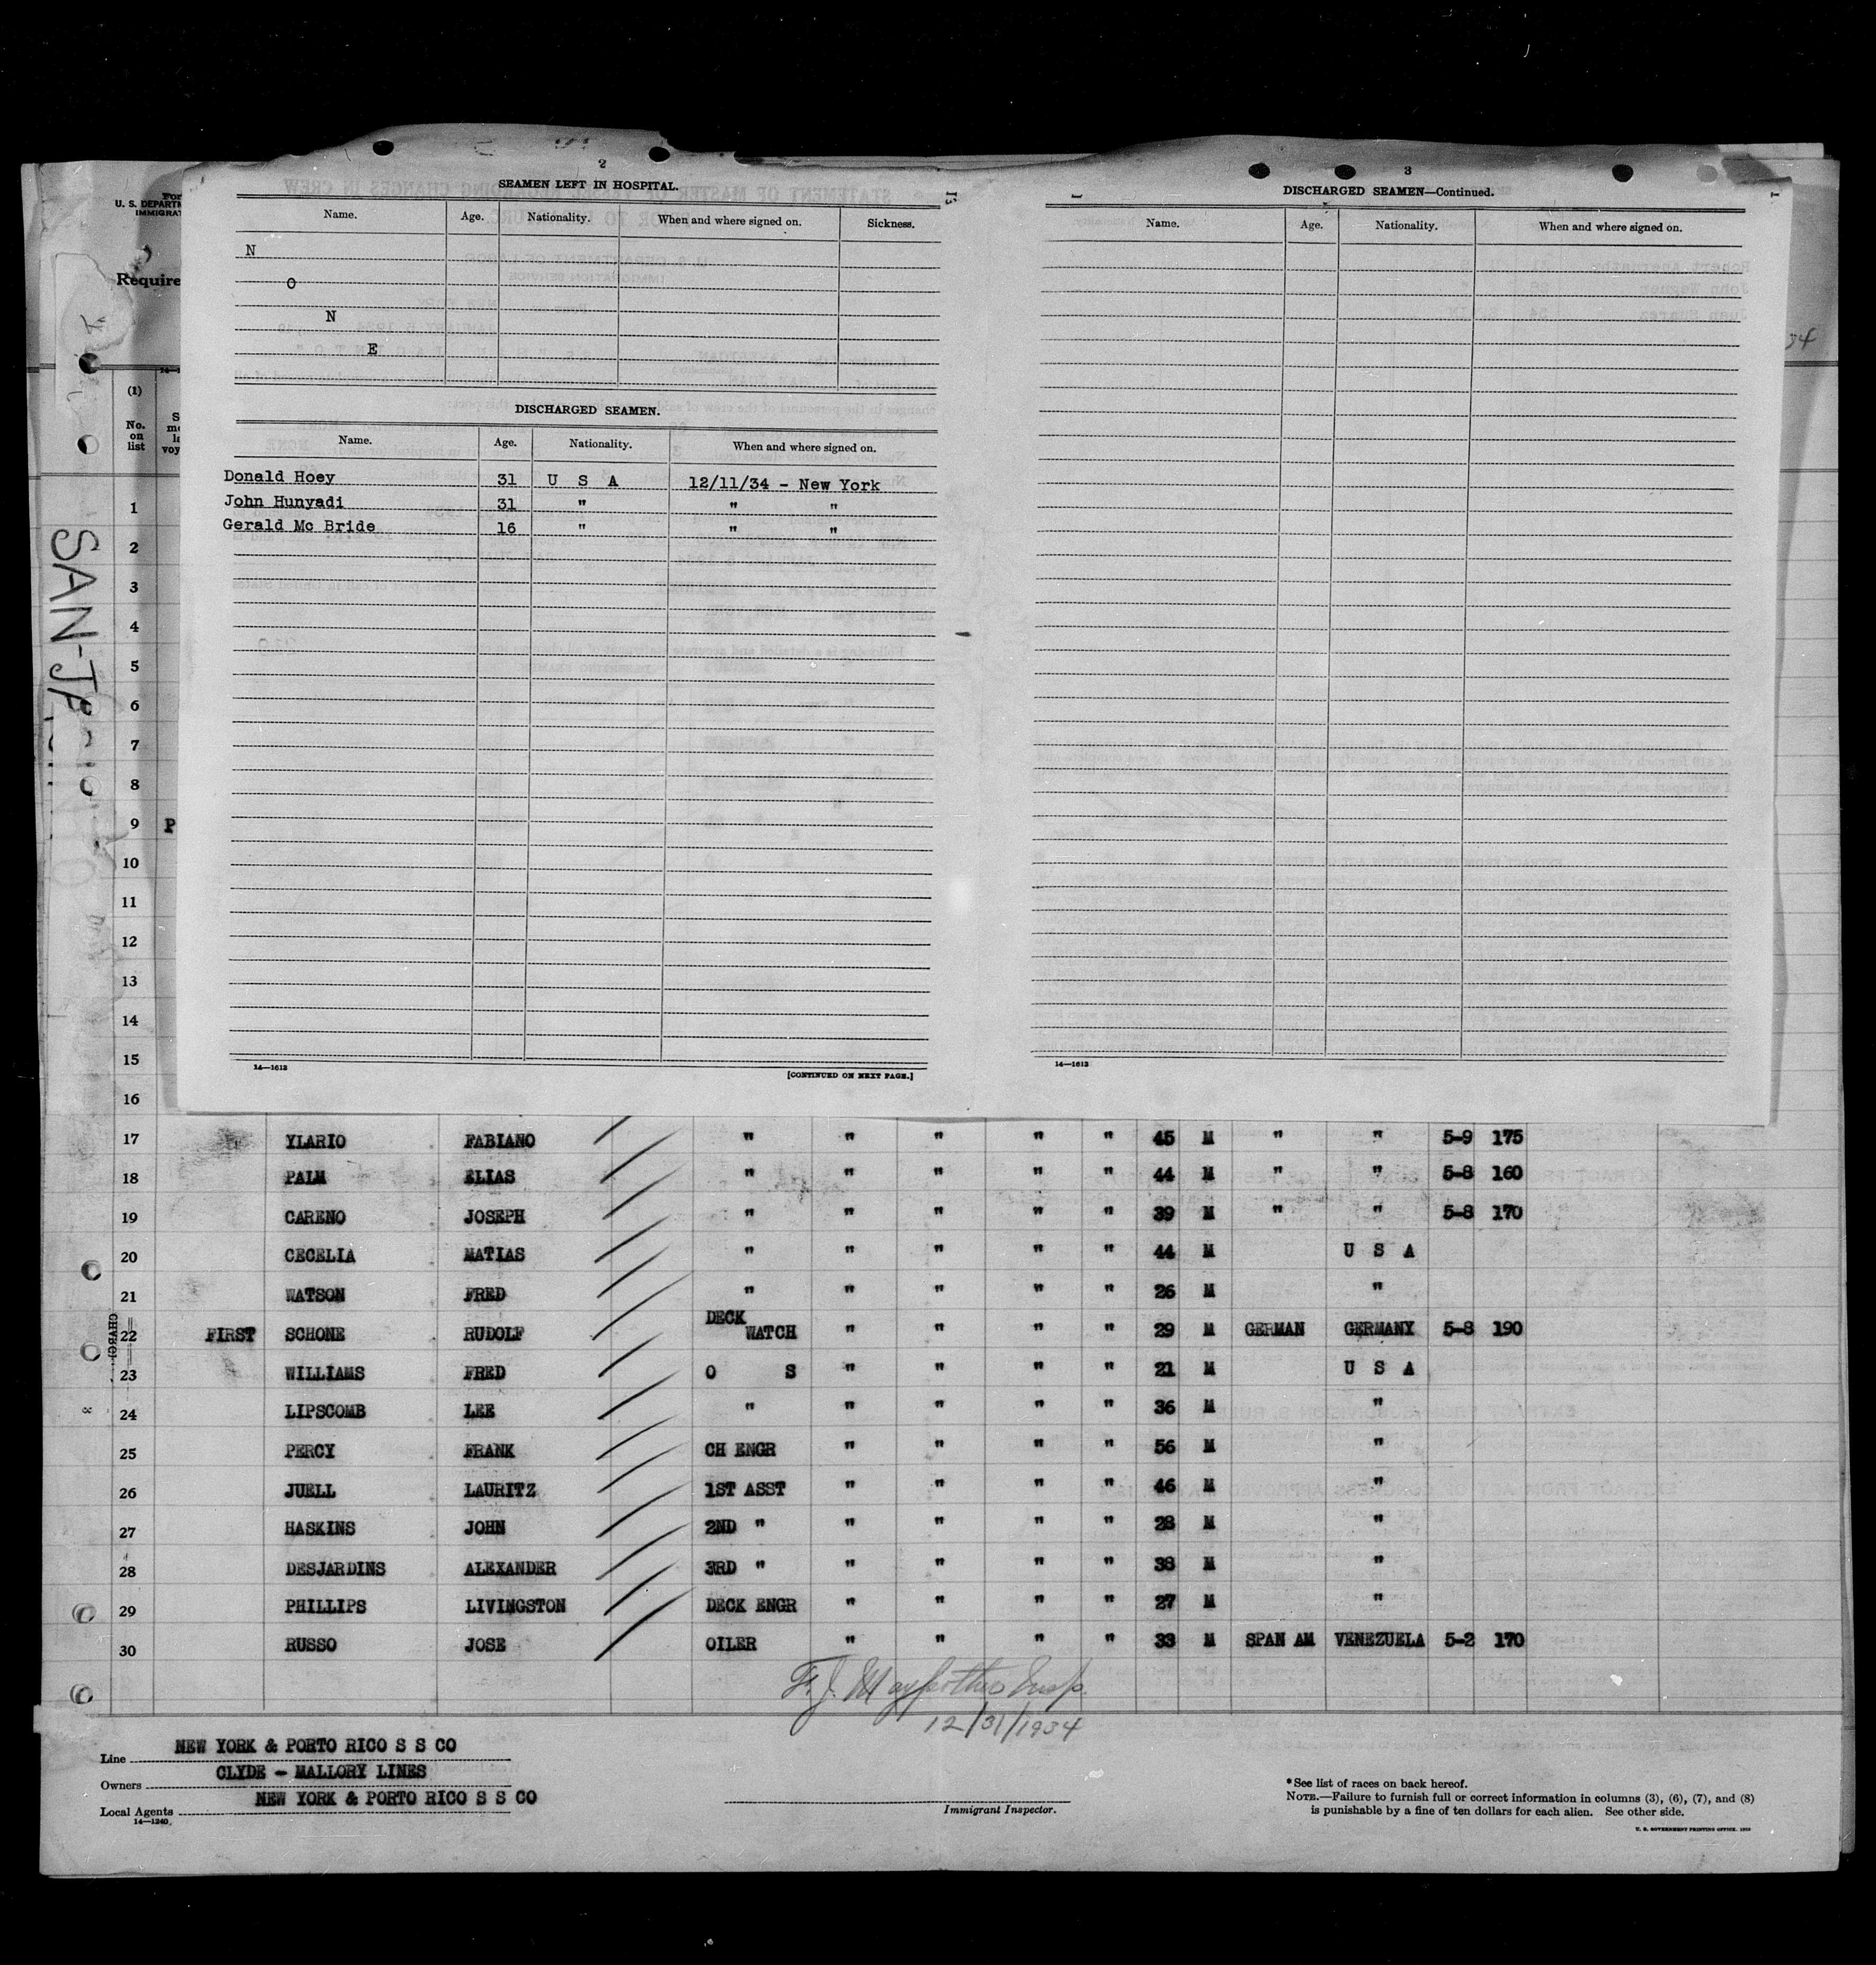 2
SEAMEN LEFT IN HOSPITAL.
Name. Age. Nationality. When and where signed on. Sickness.
N
O
N
E
DISCHARGED SEAMEN.
Name. Age. Nationality. When and where signed on.
Donald Hoey 31 U S A 12/11/34 - New York
John Hunyadi 31 " " "
Gerald Mc Bride 16 " " "
14—1613 [CONTINUED ON NEXT PAGE.]
3
DISCHARGED SEAMEN—Continued.
Name. Age. Nationality. When and where signed on.
14—1613
U. S. DEPARTM
IMMIGRAT
Require
34
(1)
No. on list
SAN-J
1
2
3
4
5
6
7
8
9 P
10
11
12
13
14
15
16
17 YLARIO FABIANO " " " " " 45 M " " 5-9 175
18 PALM ELIAS " " " " " 44 M " " 5-8 160
19 CARENO JOSEPH " " " " " 39 M " " 5-8 170
20 CECELIA MATIAS " " " " " 44 M U S A
21 WATSON FRED " " " " " 26 M "
22 FIRST SCHONE RUDOLF DECK WATCH " " " " 29 M GERMAN GERMANY 5-8 190
23 WILLIAMS FRED O S " " " " 21 M U S A
24 LIPSCOMB LEE " " " " " 36 M "
25 PERCY FRANK CH ENGR " " " " 56 M "
26 JUELL LAURITZ 1ST ASST " " " " 46 M "
27 HASKINS JOHN 2ND " " " " " 28 M "
28 DESJARDINS ALEXANDER 3RD " " " " " 38 M "
29 PHILLIPS LIVINGSTON DECK ENGR " " " " 27 M "
30 RUSSO JOSE OILER " " " " 33 M SPAN AM VENEZUELA 5-2 170
F. J. Insp.
12/31/1934
Line NEW YORK & PORTO RICO S S CO
Owners CLYDE - MALLORY LINES
Local Agents NEW YORK & PORTO RICO S S CO
14—1240
Immigrant Inspector.
*See list of races on back hereof.
NOTE.—Failure to furnish full or correct information in columns (3), (6), (7), and (8)
is punishable by a fine of ten dollars for each alien. See other side.
U. S. GOVERNMENT PRINTING OFFICE